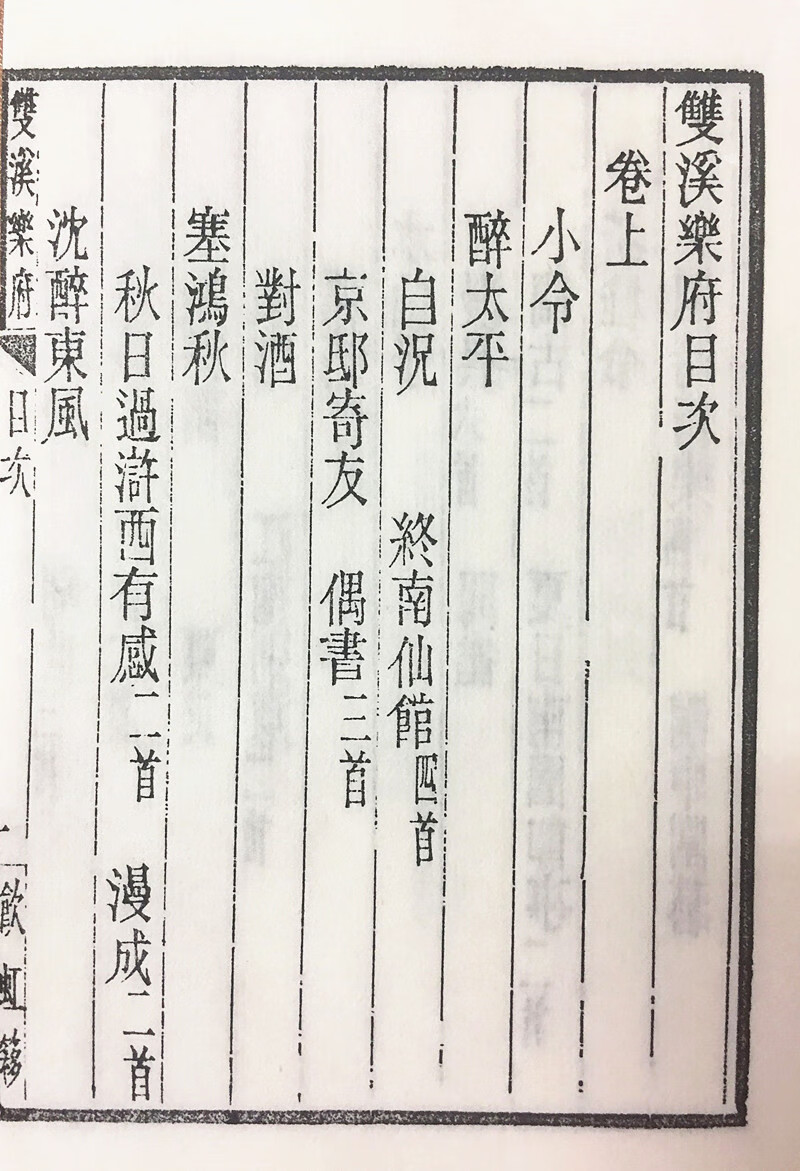 雙溪樂府目次
卷上
小令
醉太平
自況 終南仙館四首
京邸寄友 偶書三首
對酒
塞鴻秋
秋日過滸西有感二首 漫成二首
沈醉東風
雙溪樂府 目次 一 飲虹簃